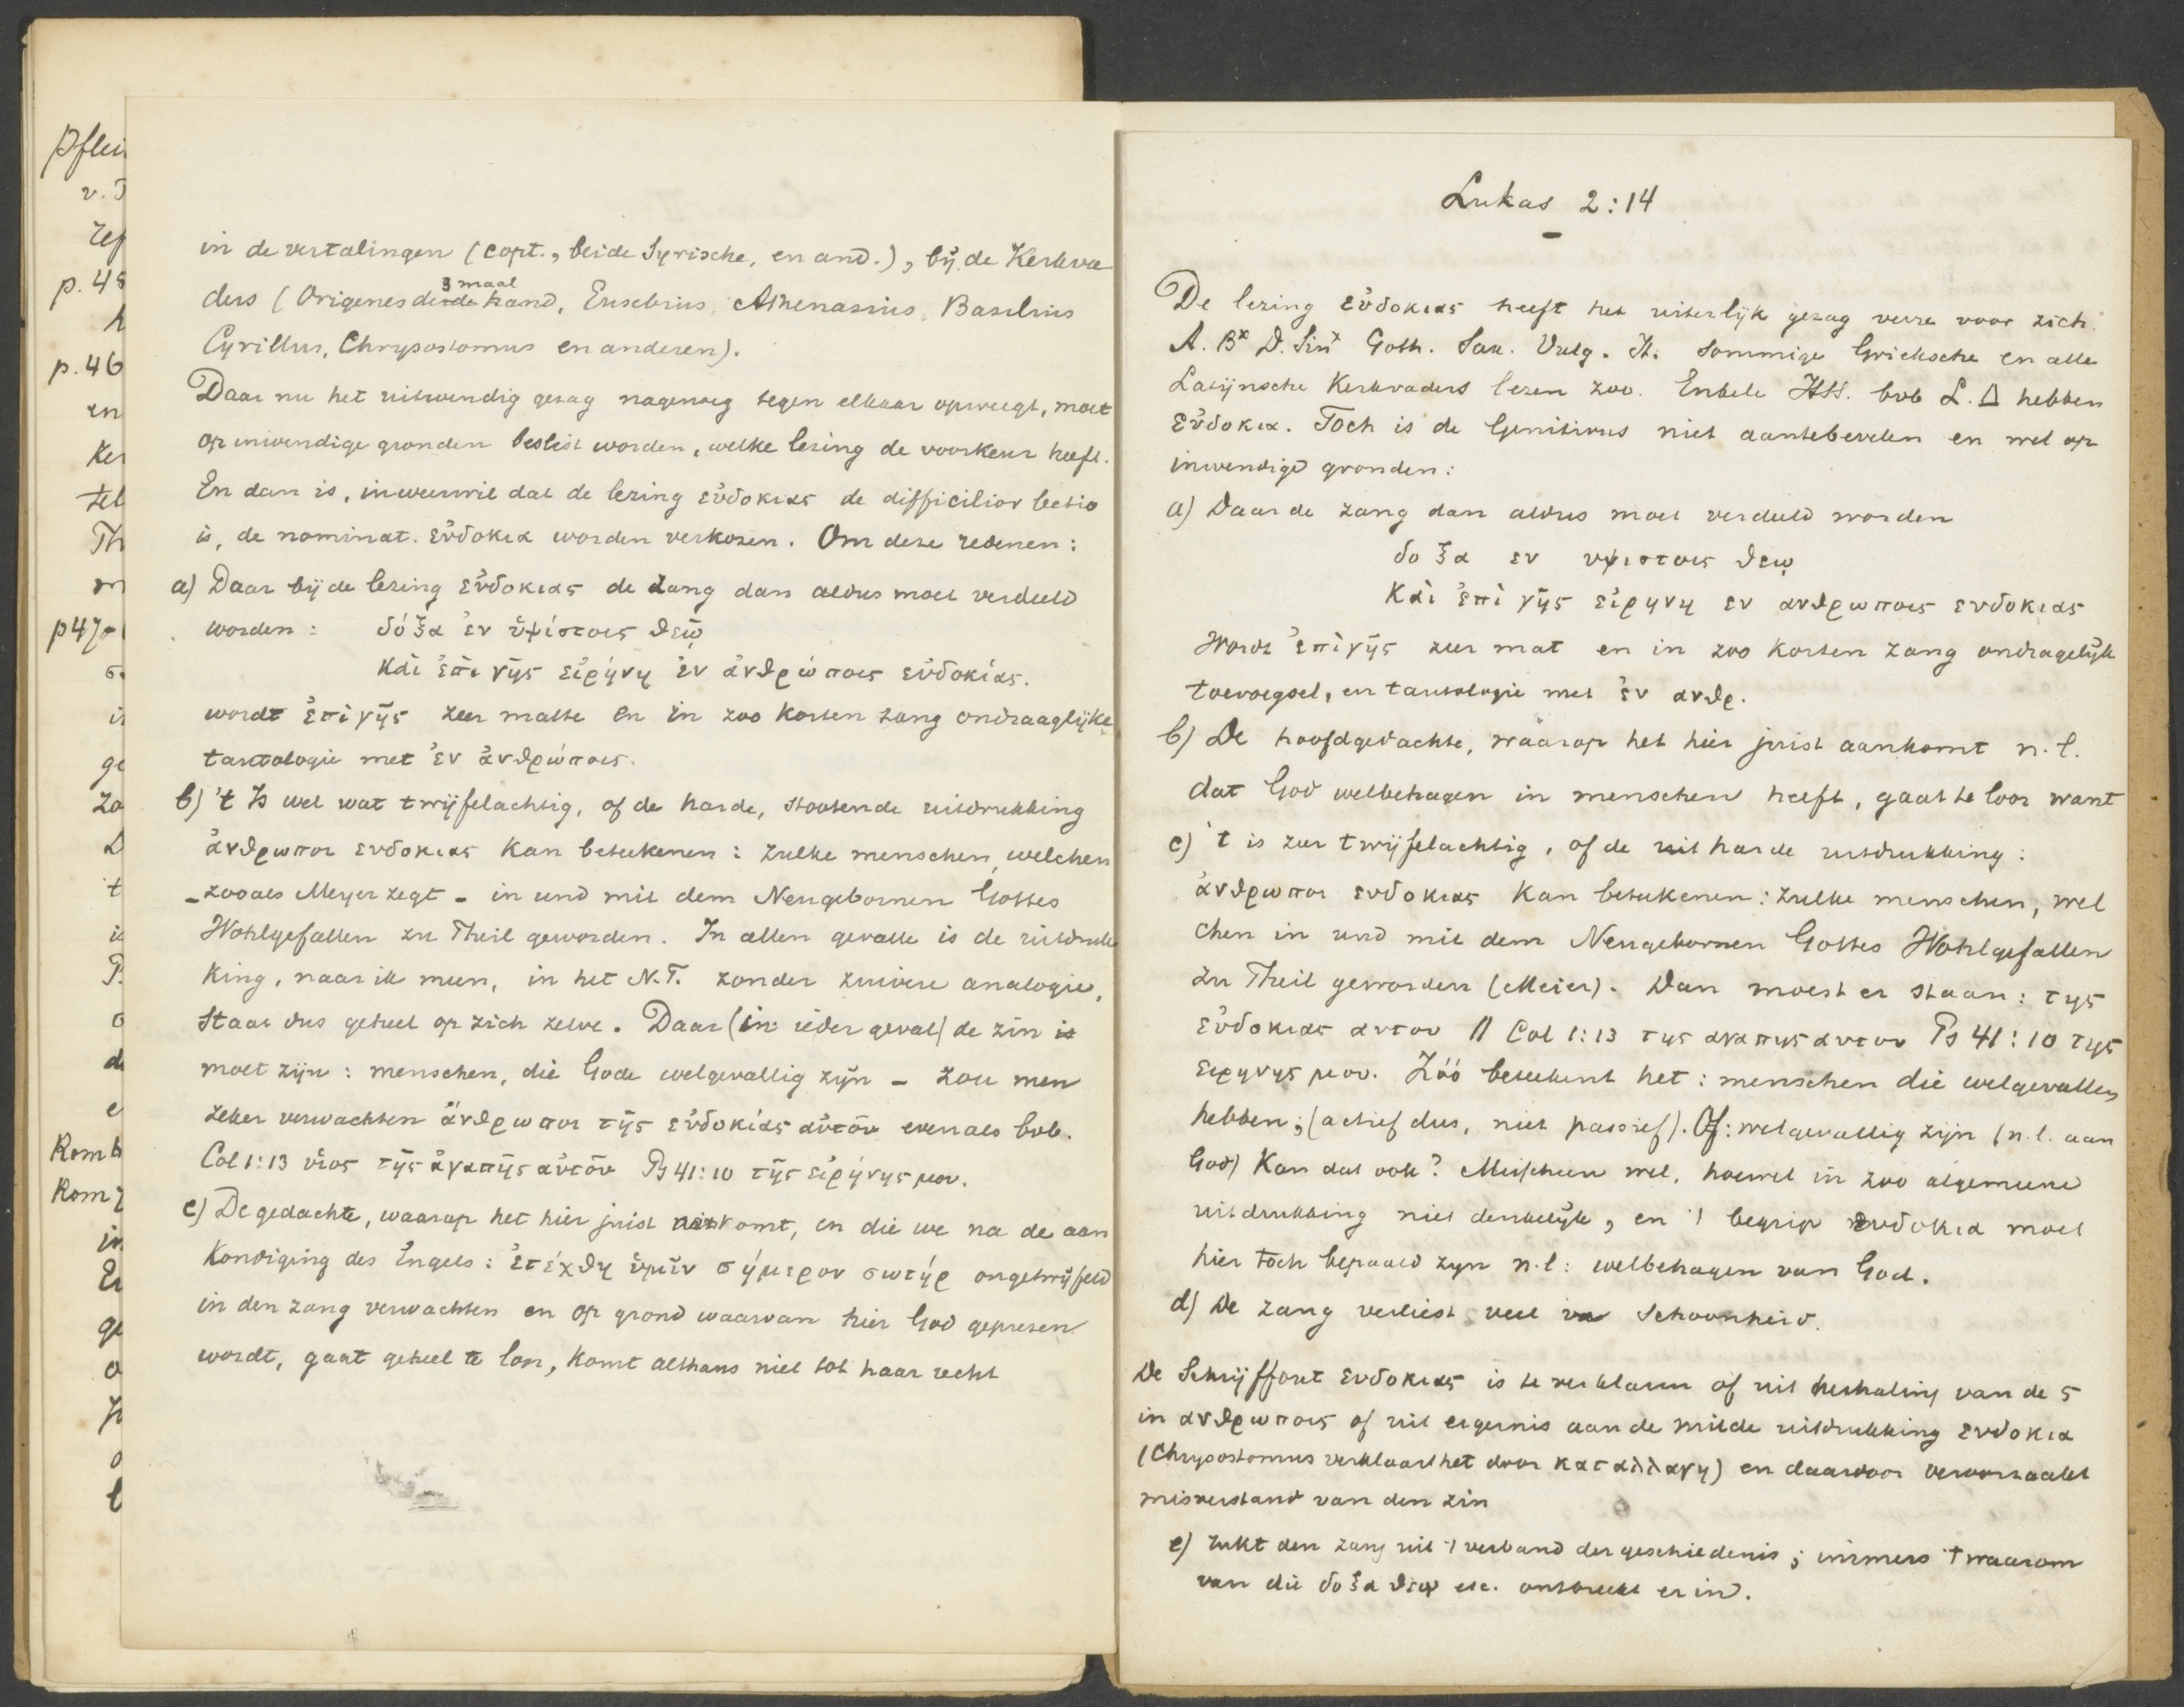 Pflei
v. T
ref
p. 45
p. 46
en
Ker
tel
Th
m
p47
ge
zo
't
Rom
Rom
in
ge
in de vertalingen (Copt., beide Syrische, en and.), bij de Kerkva
ders (Origenes derde 3 maal hand, Eusebius, Athenasius, Basilius
Cyrillus, Chrysostomus en anderen).
Daar nu het uitwendig gezag nagenoeg tegen elkaar opweegt, moet
op inwendige gronden beslist worden, welke lezing de voorkeur heeft.
En dan is, in weerwil dat de lezing εὐδοκιας de difficilior lectio
is, de nominat. εὐδοκια worden verkozen. Om deze redenen:
a) Daar bij de lezing εὐδοκιας de zang dan aldus moet verdeeld
worden: δόξα ἐν ὑψίστοις θεῷ
καὶ ἐπὶ γῆς εἰρήνη ἐν ἀνθρώποις εὐδοκίας.
wordt ἐπὶ γῆς zeer matte en in zoo korten zang ondraaglijke
tautologie met ἐν ἀνθρώποις.
b) 't Is wel wat twijfelachtig, of de harde, stootende uitdrukking
ἀνθρωποι ευδοκιας kan beteekenen: zulke menschen, welchen
- zooals Meyer zegt - in und mit dem Neugebornen Gottes
Wohlgefallen zu Theil geworden. In allen gevalle is de uitdruk
king, naar ik meen, in het N.T. zonder zuivere analogie,
staat dus geheel op zich zelve. Daar (in ieder geval) de zin is
moet zijn: menschen, die Gode welgevallig zijn - zou men
zeker verwachten ἄνθρωποι τῆς εὐδοκίας αὐτοῦ evenals bvb.
Col 1:13 υἱος τῆς ἀγαπῆς αὐτοῦ Ps 41:10 τῆς εἰρήνης μου.
c) De gedachte, waarop het hier juist komt, en die we na de aan
kondiging des Engels: ἐτέχθη ὑμῖν σήμερον σωτήρ ongetwijfeld
in den zang verwachten en op grond waarvan hier God geprezen
wordt, gaat geheel te loor, komt althans niet tot haar recht
Lukas 2:14
De lezing εὐδοκιας heeft het uiterlijk gezag verre voor zich.
A. B* D. Sin* Goth. Sax. Vulg. It. sommige Grieksche en alle
Latijnsche Kerkvaders lezen zoo. Enkele HSS. bvb L. Δ hebben
εὐδοκια. Toch is de Genitivus niet aantebevelen en wel op
inwendige gronden:
a) Daar de zang dan aldus moet verdeeld worden
δοξα εν υψιστοις θεῳ
καὶ ἐπὶ γῆς εἰρηνη εν ανθρωποις ευδοκιας
wordt ἐπὶ γῆς zeer mat en in zoo korten zang ondragelijk
toevoegsel, en tautologie met ἐν ανθρ.
b) De hoofdgedachte, waarop het hier juist aankomt n.l.
dat God welbehagen in menschen heeft, gaat te loor want
c) 't is zeer twijfelachtig, of de uit harde uitdrukking:
ἀνθρωποι ευδοκιας kan beteekenen: zulke menschen, wel
chen in und mit dem Neugebornen Gottes Wohlgefallen
zu Theil geworden (Meier). Dan moest er staan: της
εὐδοκιας αυτου // Col 1:13 της αγαπης αυτου Ps 41:10 της
ειρηνης μου. Zóó beteekent het: menschen die welgevallen
hebben; (actief dus, niet passief). Of: welgevallig zijn (n.l. aan
God) Kan dat ook? Misschien wel, hoewel in zoo algemeene
uitdrukking niet denkelijk, en 't begrip ευδοκια moet
hier toch bepaald zijn n.l: welbehagen van God.
d) De zang verliest veel in schoonheid.
De Schrijffout ευδοκιας is te verklaren of uit herhaling van de ς
in ανθρωποις of uit ergernis aan de milde uitdrukking ευδοκια
(Chrysostomus verklaart het door καταλλαγη) en daardoor veroorzaakt
misverstand van den zin
e) rukt den zang uit 't verband der geschiedenis; immers 't waarom
van die δοξα θεῳ etc. ontbreekt er in.